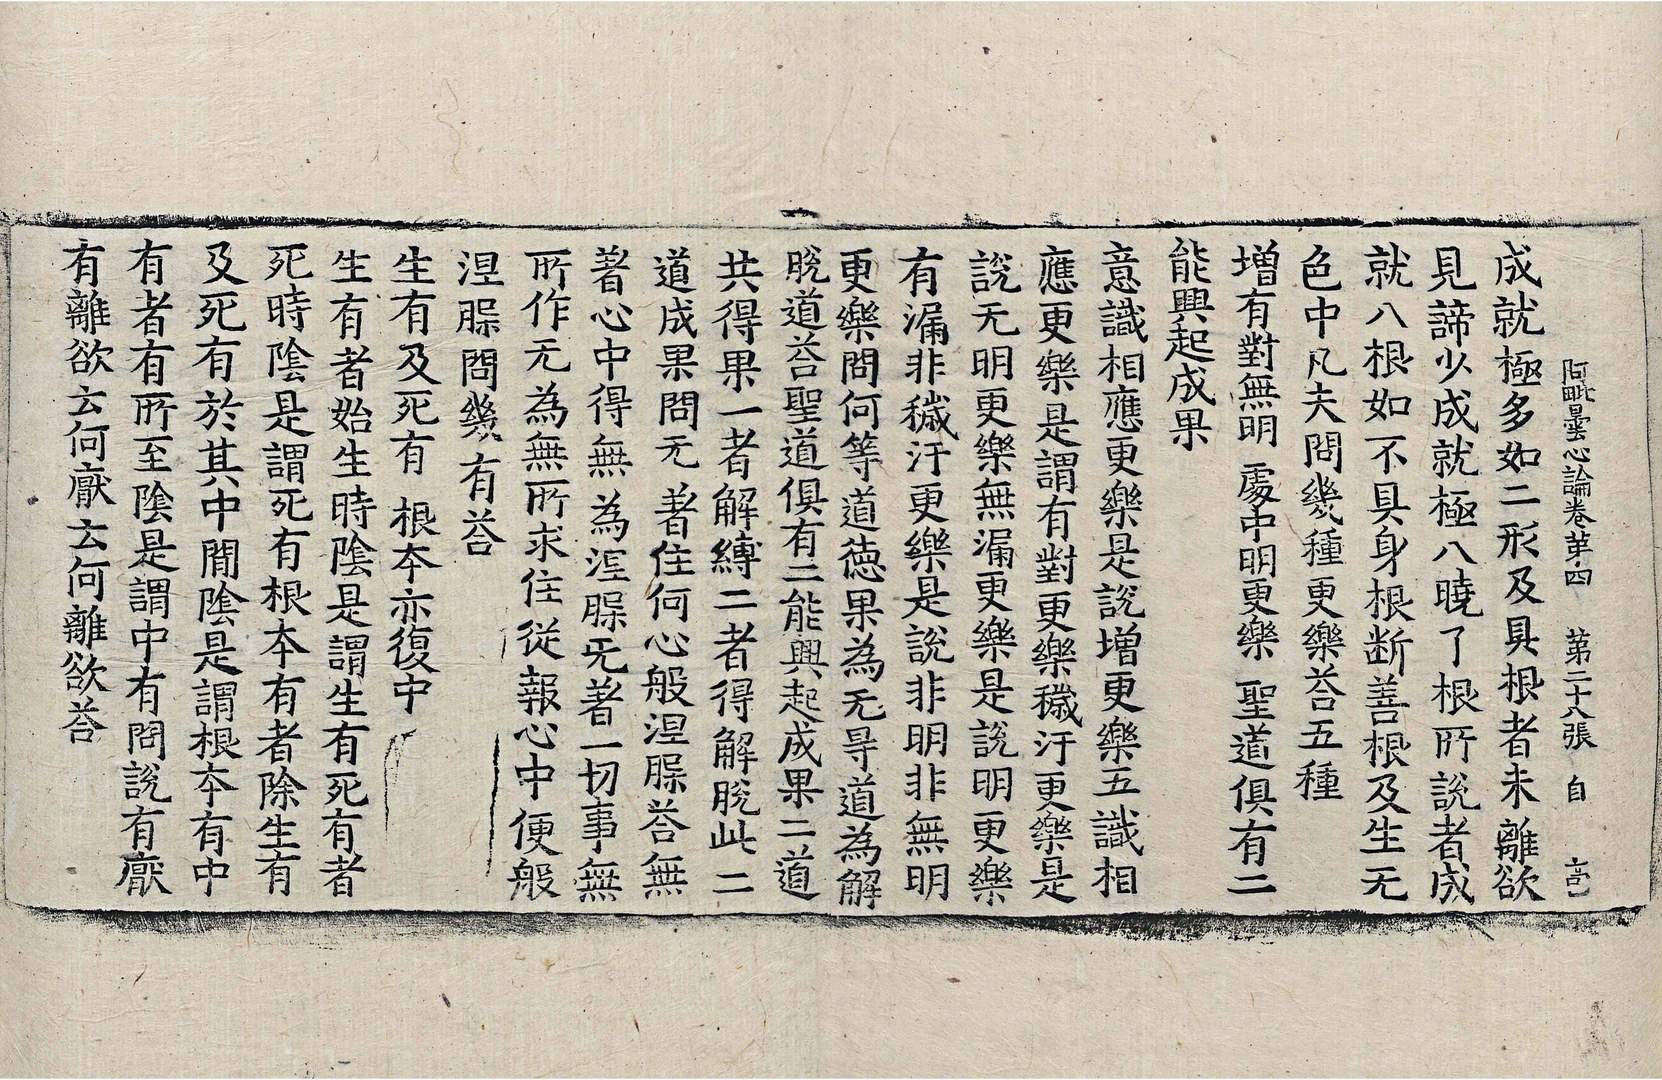 阿毗曇心論卷苐四　第二十八張　自
成就極多如二形及具根者未離欲
見諦少成就極八曉了根所說者成
就八根如不具身根断善根及生无
色中凡夫問幾種更樂荅五種
增有對無明　處中明更樂　聖道俱有二
能興起成果
意識相應更樂是說增更樂五識相
應更樂是謂有對更樂穢汙更樂是
說无明更樂無漏更樂是說明更樂
有漏非穢汙更樂是說非明非無明
更樂問何等道德果為无㝵道為解
脫道荅聖道俱有二能興起成果二道
共得果一者解縛二者得解脫此二
道成果問无著住何心般涅㬎荅無
著心中得無為涅㬎无著一切事無
所作无為無所求住從報心中便般
涅㬎問幾有荅
生有及死有　根夲亦復中
生有者始生時陰是謂生有死有者
死時陰是謂死有根本有者除生有
及死有於其中間陰是謂根夲有中
有者有所至陰是謂中有問說有厭
有離欲云何厭云何離欲荅